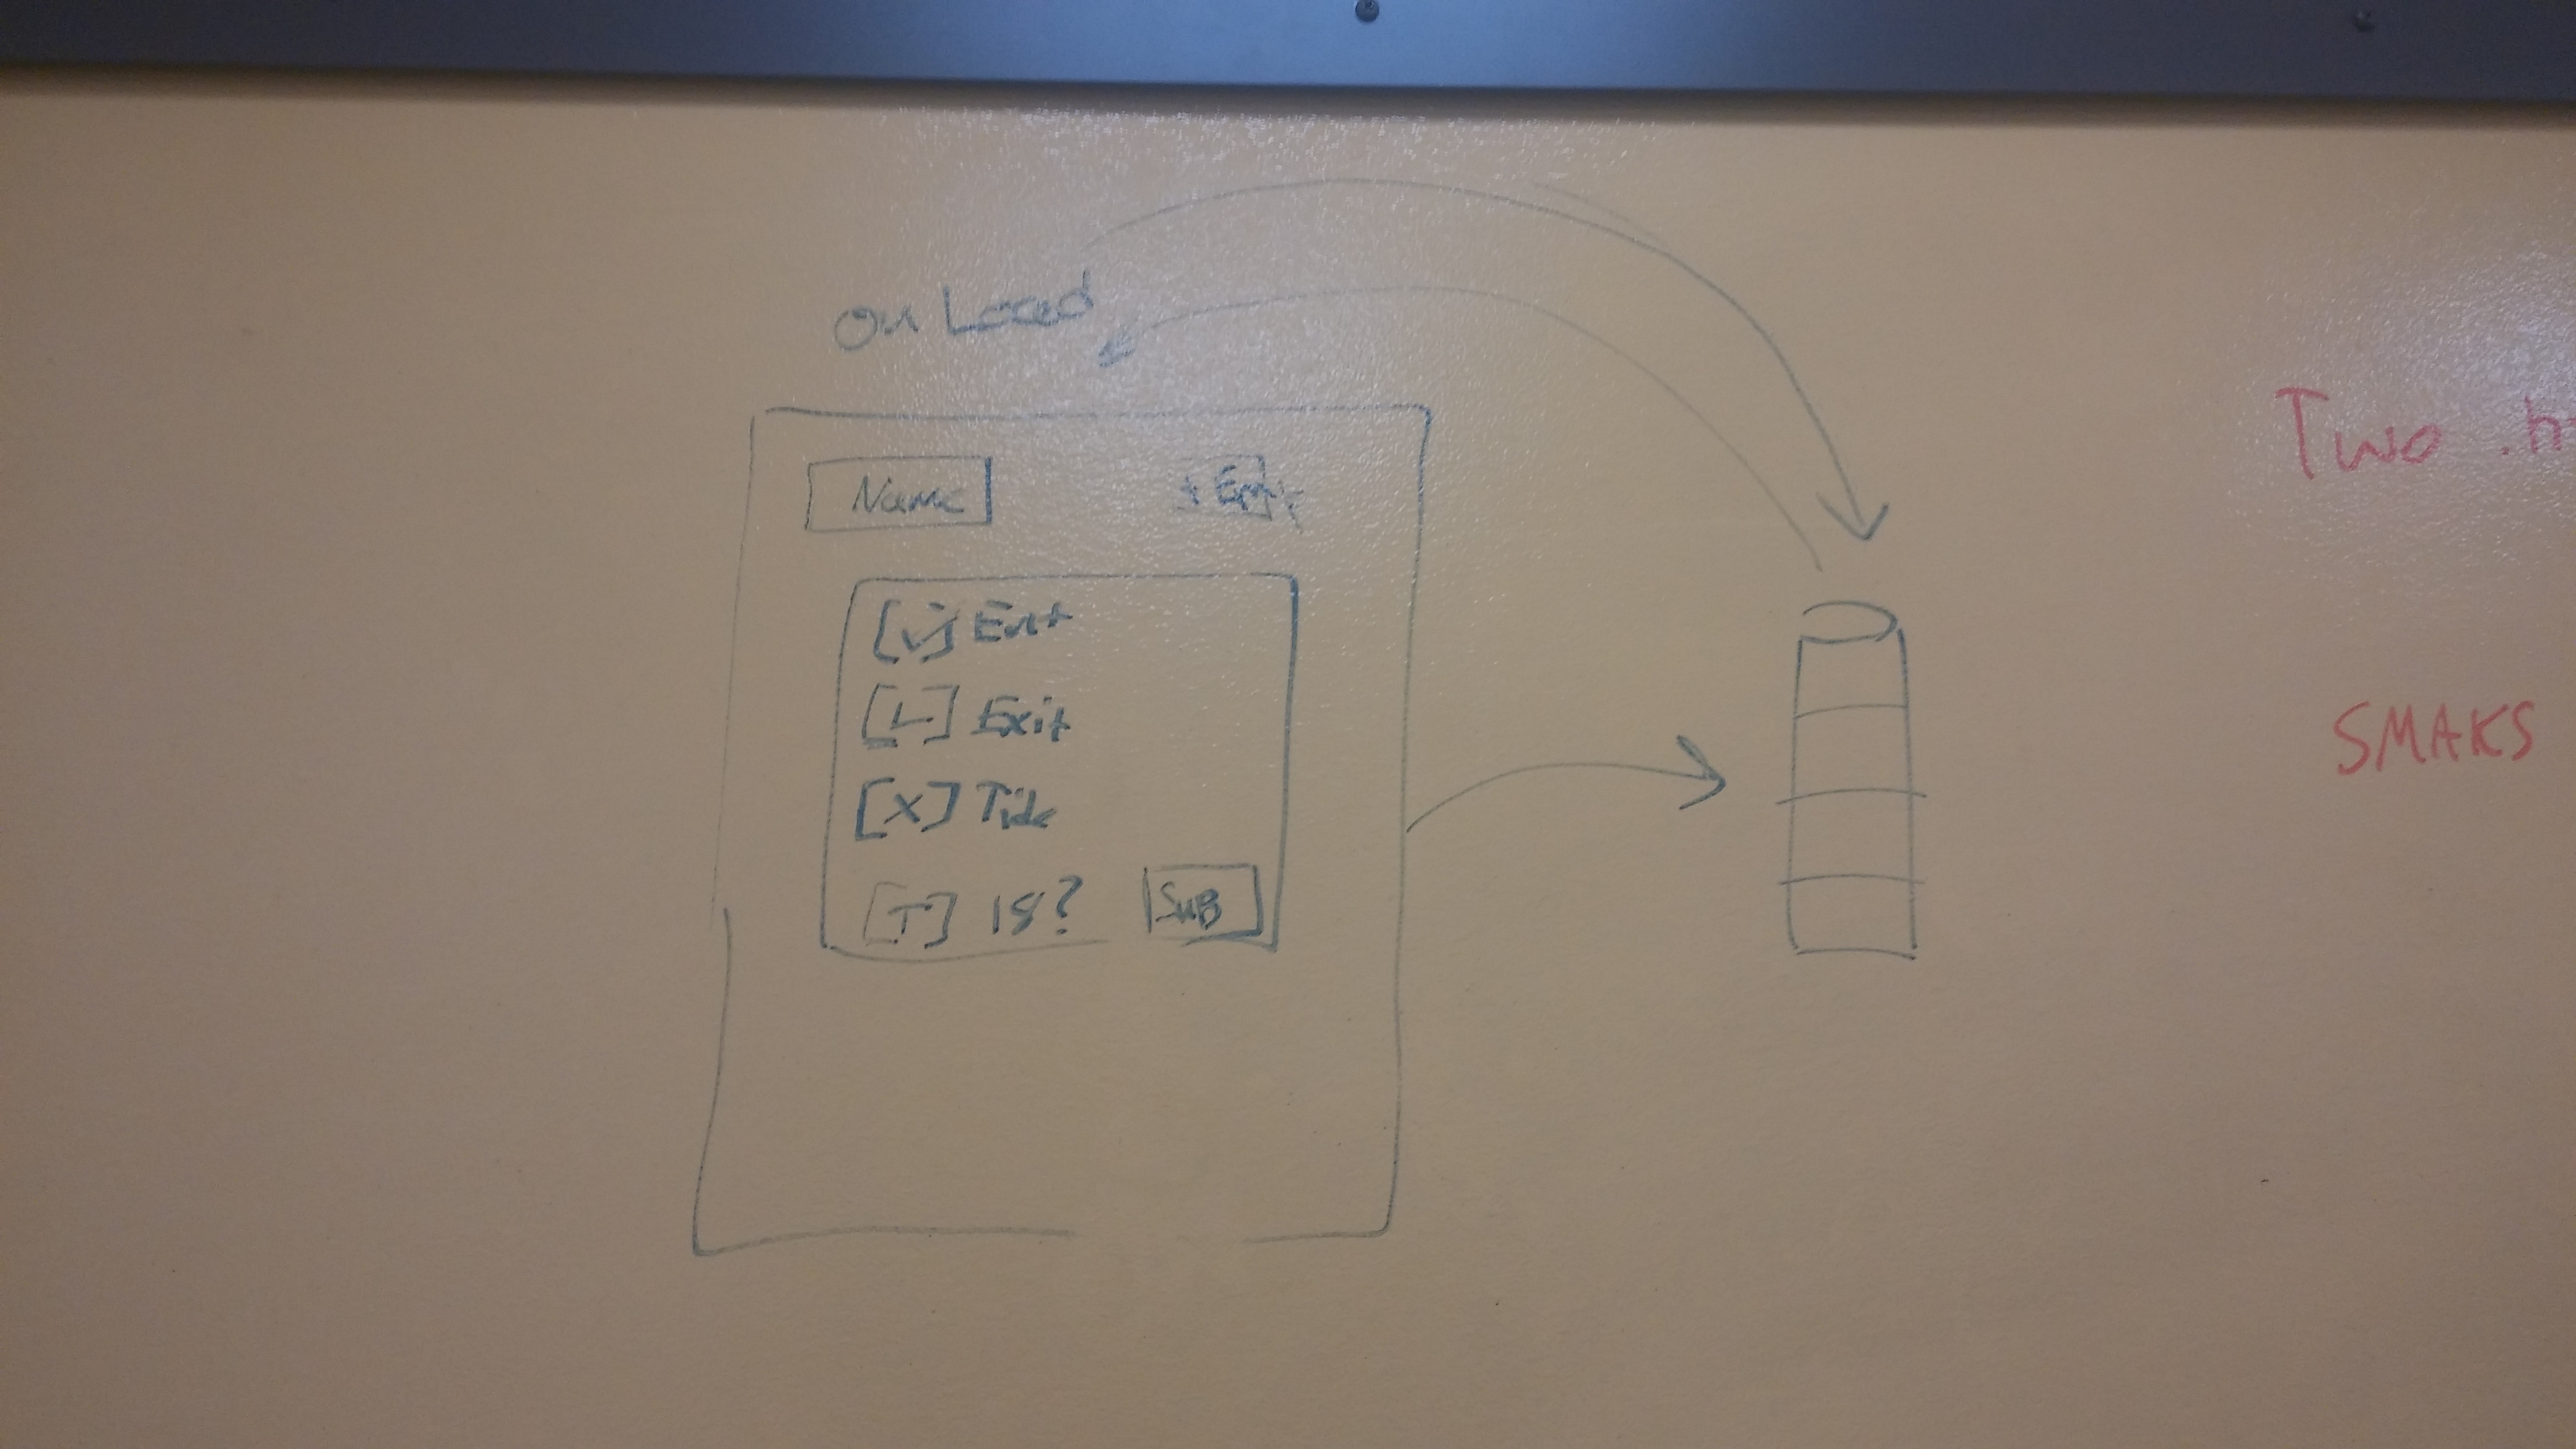 On Load
Name
[✓] Ent
[L] Exit
[X] Title
[T] 18?
SUB
Two .h
SMAKS